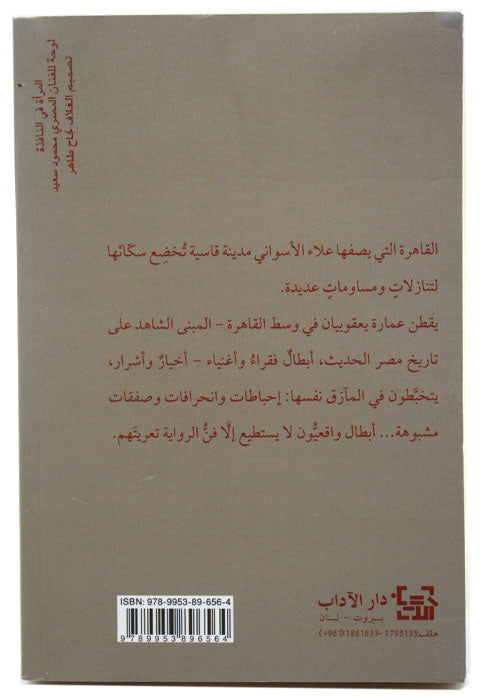 المرأة في النافذة
لوحة للفنان المصري محمود سعيد
تصميم الغلاف نجاح طاهر
القاهرة التي يصفها علاء الأسواني مدينة قاسية تُخضِع سكّانَها
لتنازلاتٍ ومساوماتٍ عديدة.
يقطن عمارة يعقوبيان في وسط القاهرة – المبنى الشاهد على
تاريخ مصر الحديث، أبطالٌ فقراءُ وأغنياء – أخيارٌ وأشرار،
يتخبَّطون في المآزق نفسها: إحباطات وانحرافات وصفقات
مشبوهة... أبطال واقعيُّون لا يستطيع إلَّا فنُّ الرواية تعريتَهم.
ISBN: 978-9953-89-656-4
9 789953 896564
دار الآداب
بيروت – لبنان
هاتف: 1795135 – 1861633 (961+)